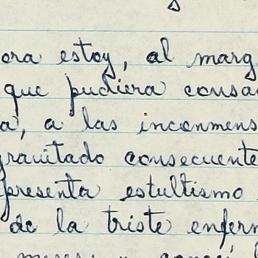 ora estoy, al marg
que pudiera consa
a, a las inconmens
gravitado consecuente
presenta estultismo
de la triste enfer